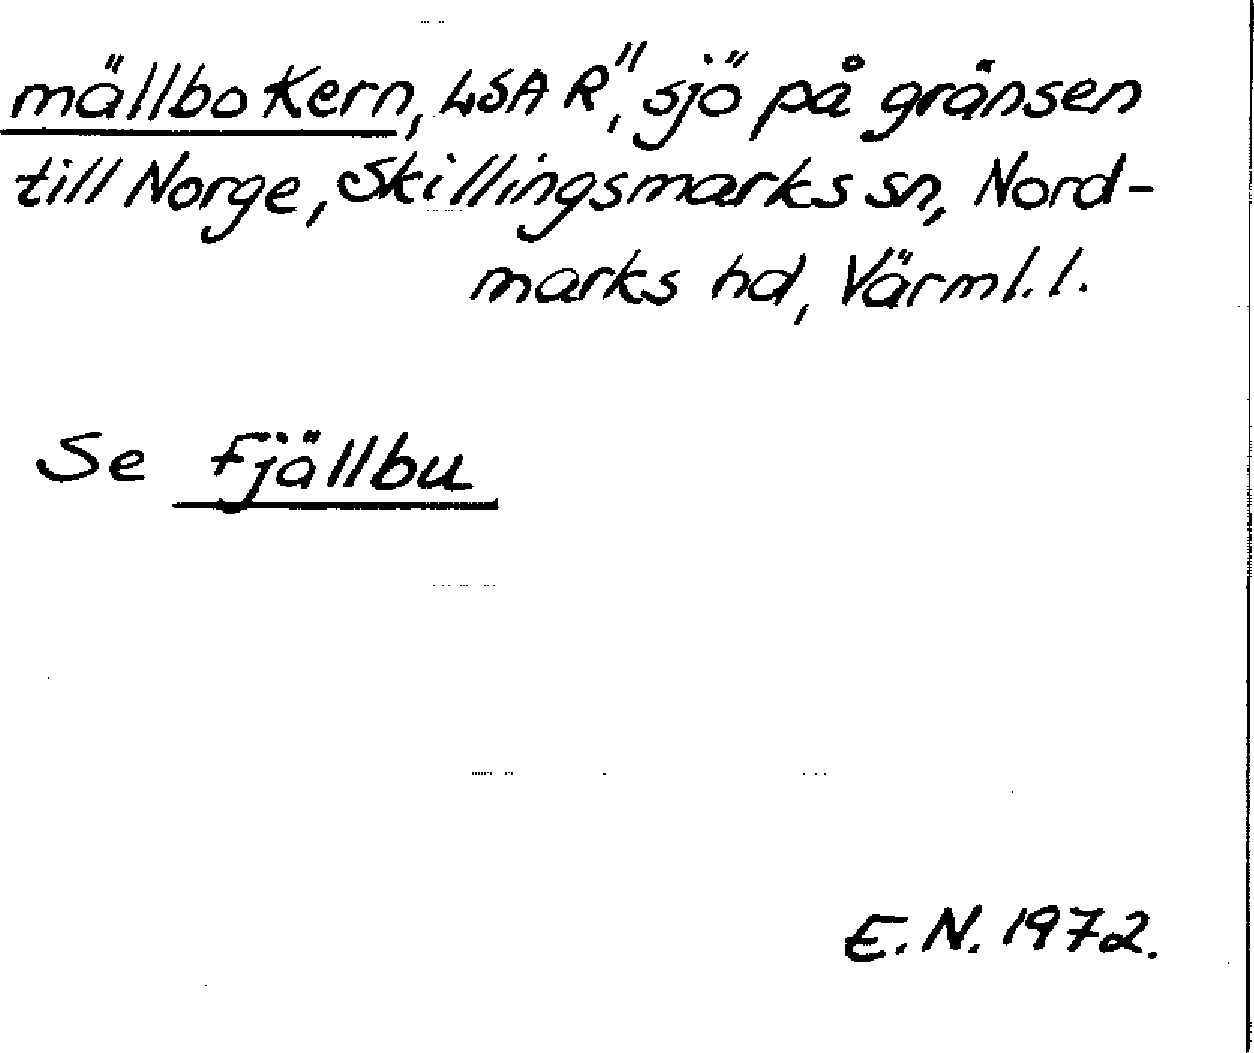 mällbo Kern, LSA R", sjö på gränsen
till Norge, Skillingsmarks sn, Nord-
marks hd, Värml. l.
Se Fjällbu
E. N. 1972.